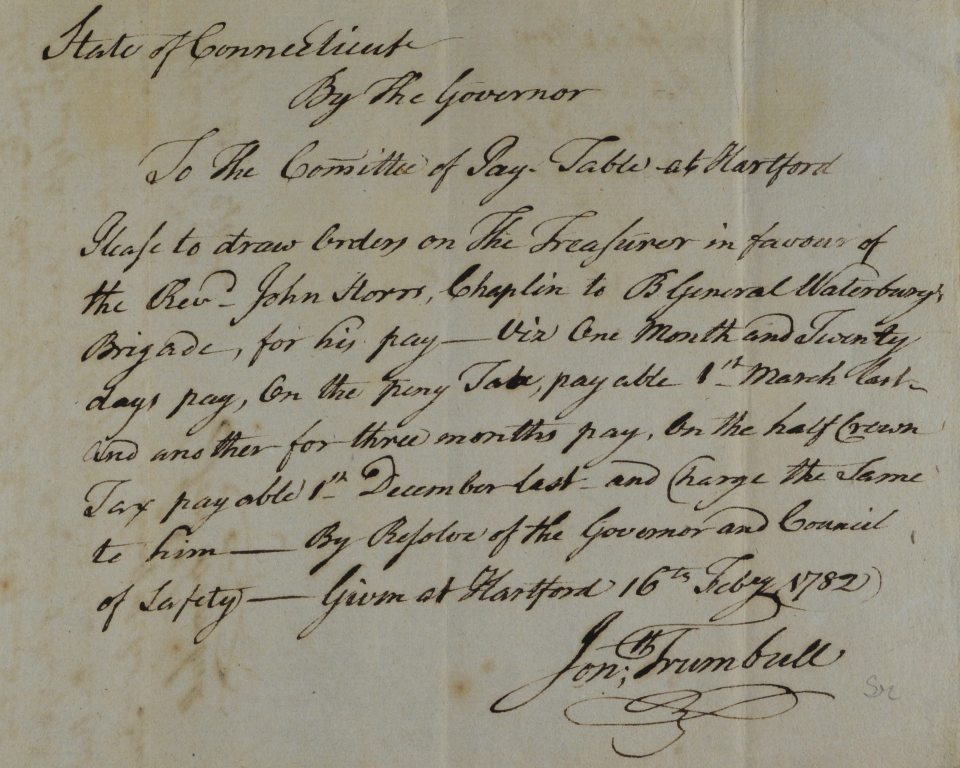 State of Connecticut
By The Governor
To The Com̄ittee of Pay-Table at Hartford
Please to draw Orders on The Treasurer in favour of
the Revd. John Storrs, Chaplin to B General Waterbury's
Brigade, for his pay — Viz One Month and Twenty
days pay, On the peny Tax, payable 1st March last-
and another for three months pay, On the half Crown
Tax payable 1st December last - and Charge the Same
to him — By Resolve of the Governor and Council
of Safety — Given at Hartford 16th Feby 1782
Jonth; Trumbull
Sr